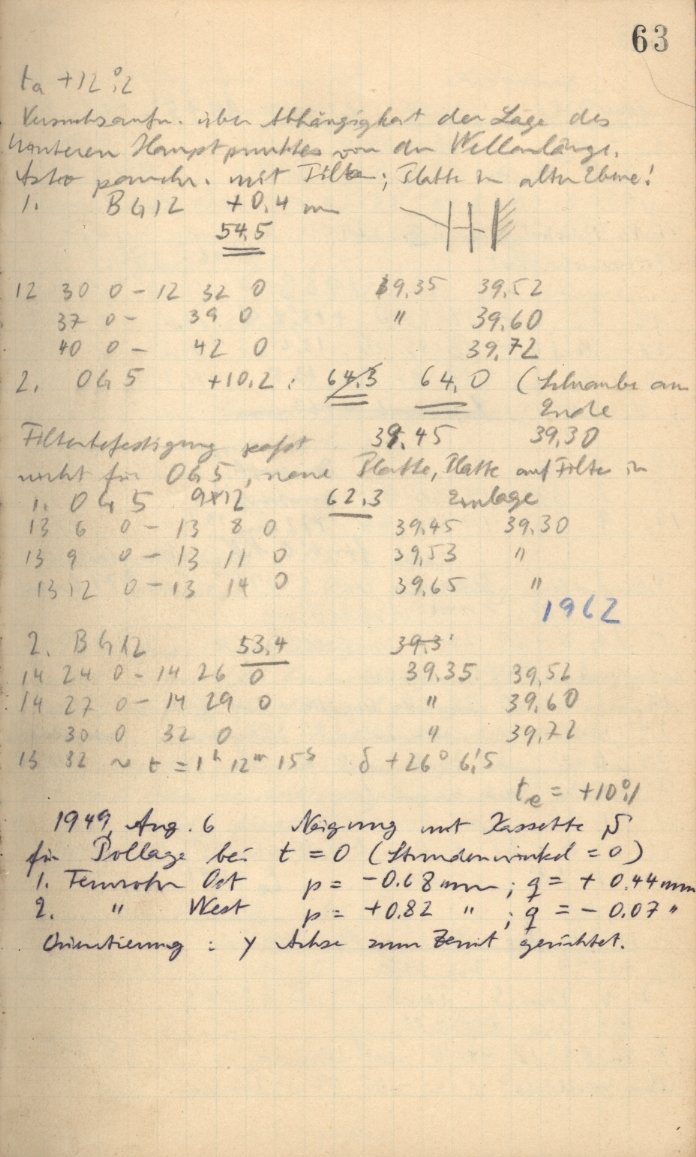 63
ta +12°,2
Versuchsaufn. über Abhängigkeit der Lage des
hinteren Hauptpunktes von der Wellenlänge.
Astro mit Filter; Platte in alter Ebene!
1. BG12 +0,4 mm
54,5
12 30 0 – 12 32 0 39,35 39,52
37 0 – 39 0 " 39,60
40 0 – 42 0 39,72
2. OG5 +10,2 : 64,3 64,0 (Schraube am
Ende
Filterbefestigung passt 39,45 39,30
nicht für OG5, neue Platte, Platte auf Filter in
1. OG5 9x12 62,3 Einlage
13 6 0 – 13 8 0 39,45 39,30
13 9 0 – 13 11 0 39,53 "
13 12 0 – 13 14 0 39,65 "
1962
2. BG12 53,4 39,3
14 24 0 – 14 26 0 39,35 39,52
14 27 0 – 14 29 0 " 39,60
30 0 32 0 " 39,72
13 32 ~ t = 1h 12m 15s δ +26° 6',5
te = +10°,1
1949, Aug. 6 Neigung mit Kassette
für Pollage bei t = 0 (Stundenwinkel = 0)
1. Fernrohr Ost p = -0.68 mm ; q = + 0.44 mm
2. " West p = +0.82 " ; q = - 0.07 "
Orientierung : y Achse zum Zenit gerichtet.